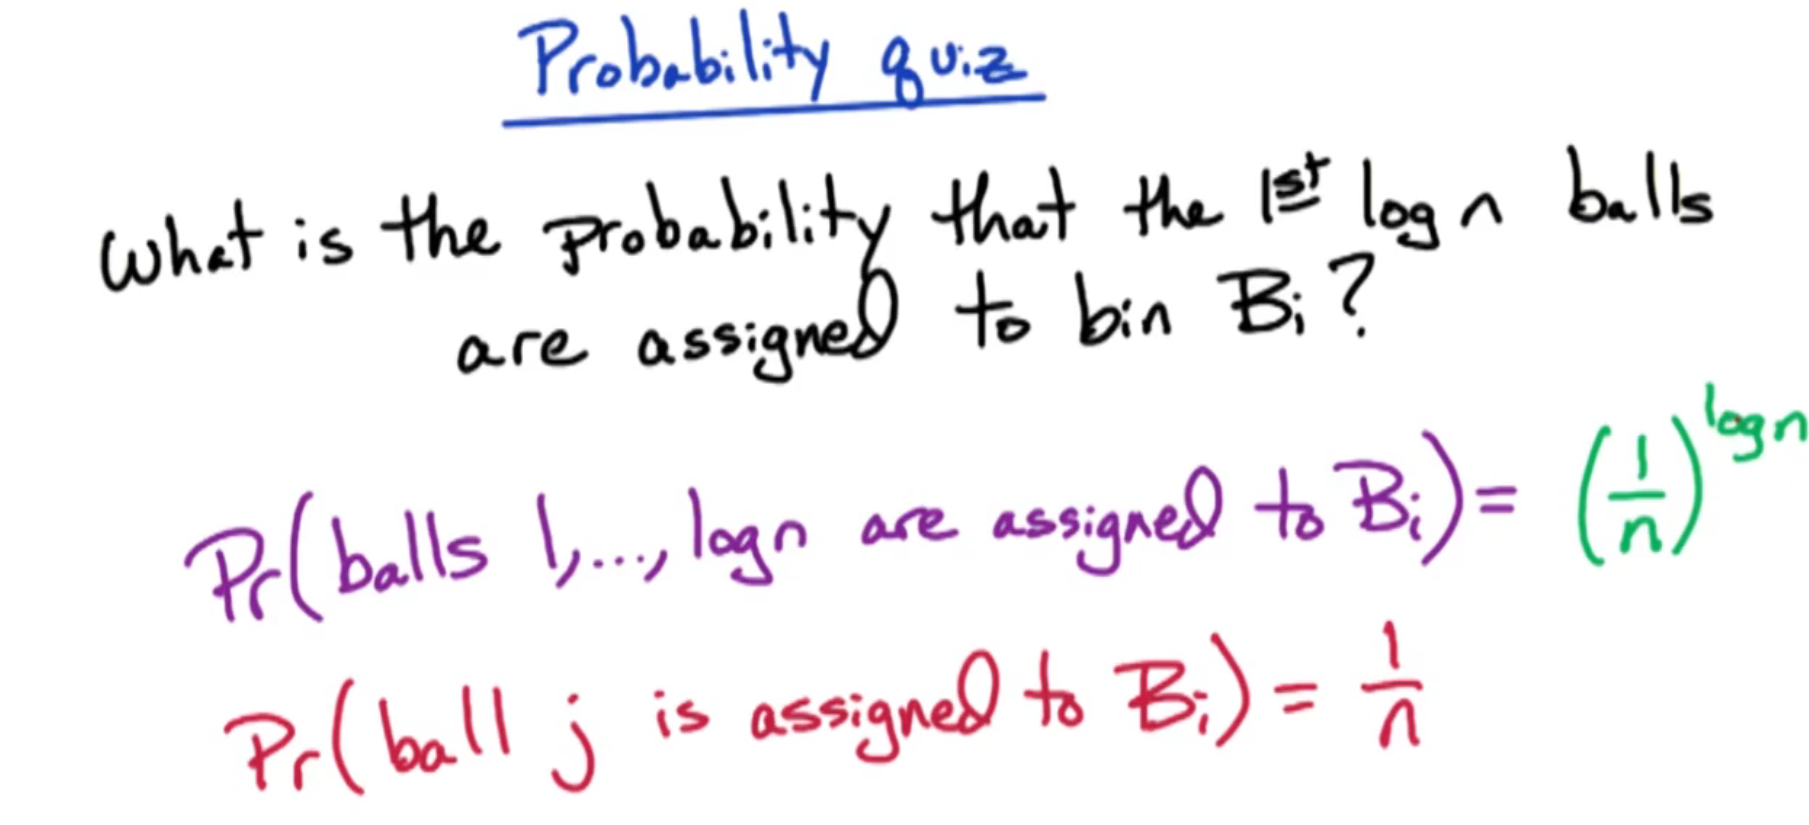 Probability quiz
What is the probability that the 1st log n balls
are assigned to bin Bi?
Pr(balls 1,...,log n are assigned to Bi) = (1/n)^log n
Pr(ball j is assigned to Bi) = 1/n